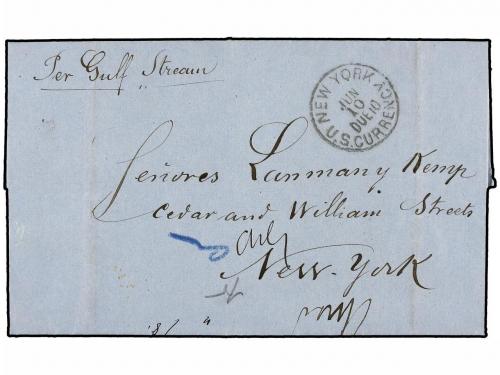 Per Gulf Stream
NEW YORK
JUN
10
DUE 10
U.S. CURRENCY
Señores Lanman y Kemp
Cedar and William Streets
New-York